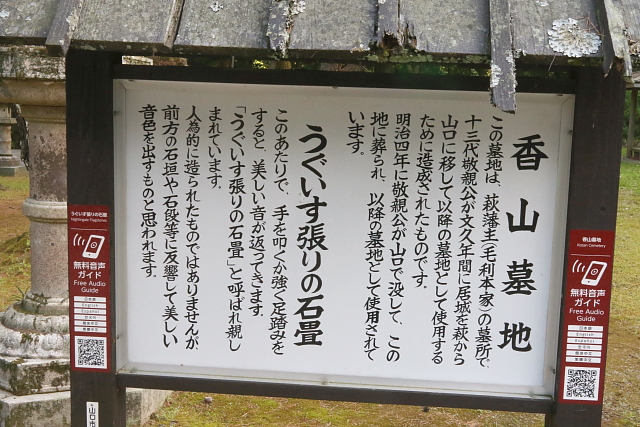 香山墓地
この墓地は、萩藩主(毛利本家)の墓所で、
十三代敬親公が文久年間に居城を萩から
山口に移して以降の墓地として使用する
ために造成されたものです。
明治四年に敬親公が山口で没して、この
地に葬られ、以降の墓地として使用されて
います。
うぐいす張りの石畳
このあたりで、手を叩くか強く足踏みを
すると、美しい音が返ってきます。
「うぐいす張りの石畳」と呼ばれ親し
まれています。
人為的に造られたものではありませんが、
前方の石垣や石段等に反響して美しい
音色を出すものと思われます。
香山墓地
Kozan Cemetery
無料音声
ガイド
Free Audio
Guide
日本語
English
Español
한국어
简体中文
繁體中文
うぐいす張りの石畳
Nightingale Flagstones
無料音声
ガイド
Free Audio
Guide
日本語
English
Español
한국어
简体中文
繁體中文
山口市